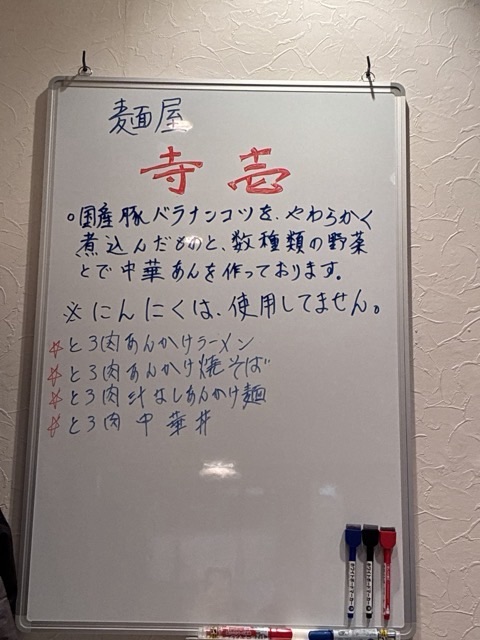 麺屋
寺壱
○国産豚バラナンコツを、やわらかく
煮込んだものと、数種類の野菜
とで中華あんを作っております。
※にんにくは、使用してません。
☆とろ肉あんかけラーメン
☆とろ肉あんかけ焼そば
☆とろ肉汁なしあんかけ麺
☆とろ肉中華丼